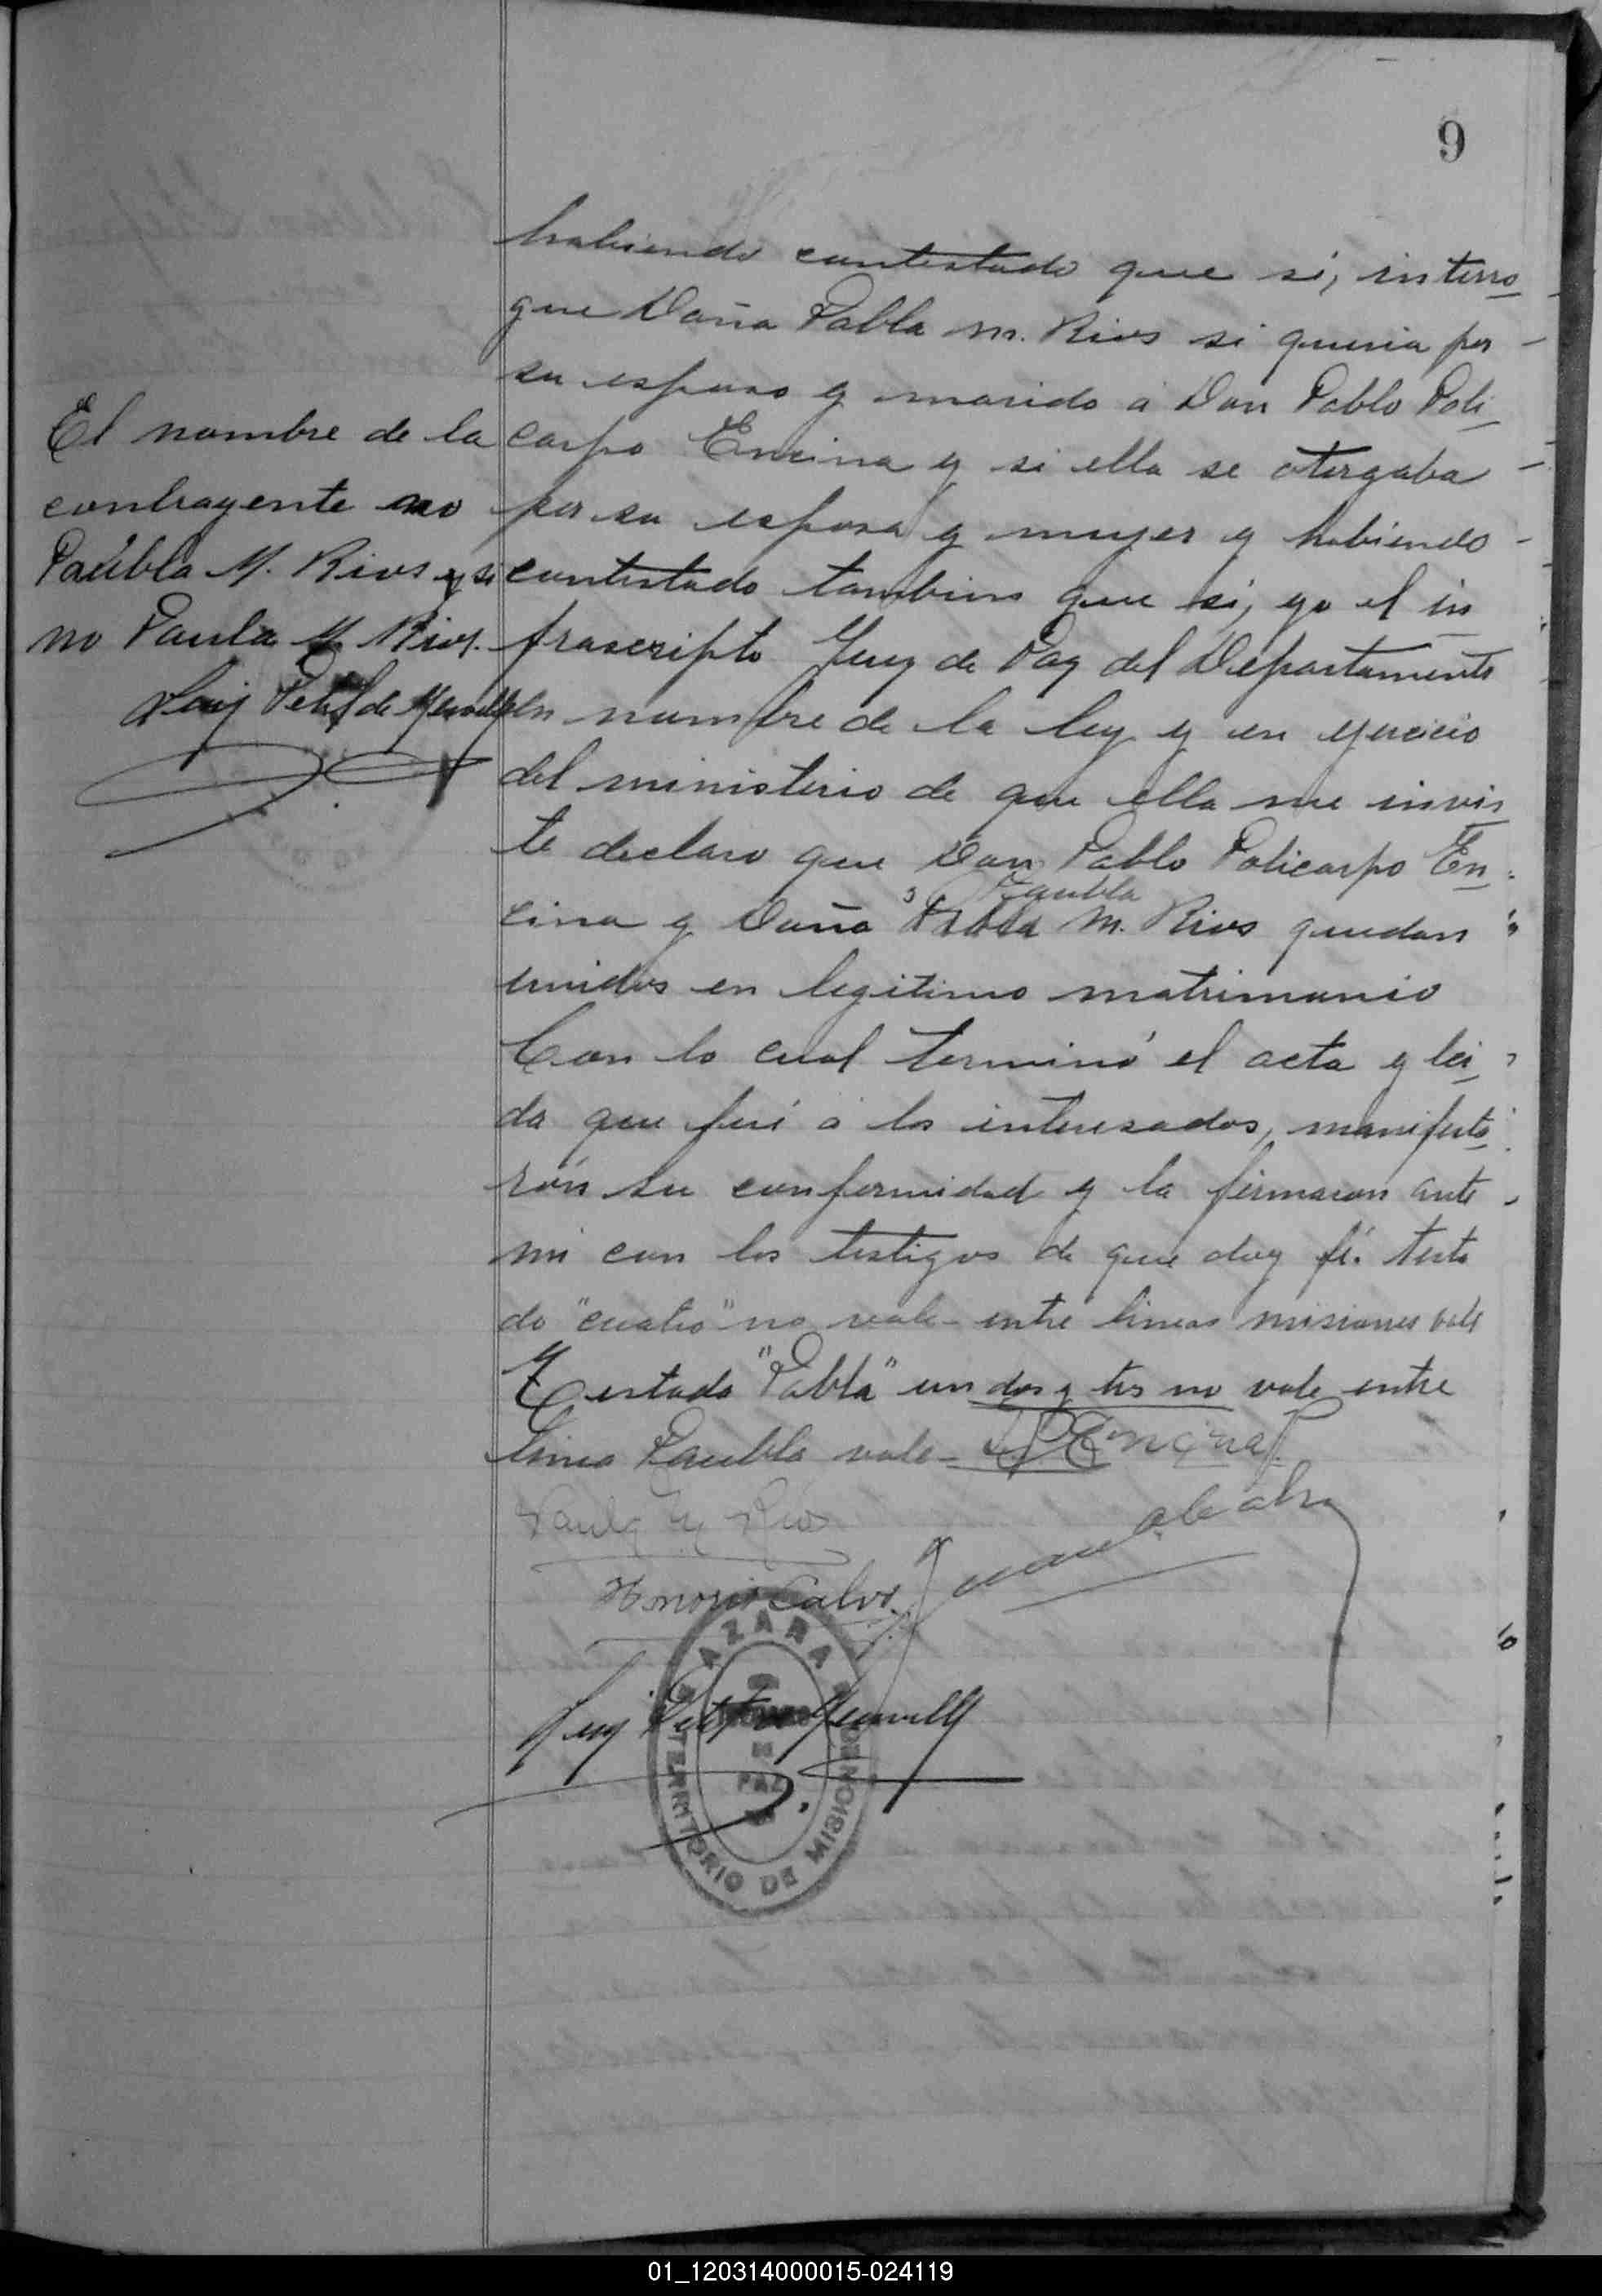 9
habiendo contestado que si, interro
gue Doña Pabla M. Rios si queria por
su esposo y marido á Don Pablo Poli
carpo Encina y si ella se otorgaba
por su esposa y mujer y habiendo
contestado tambien que si, yo el in
frascripto Juez de Paz del Departamento
en nombre de la ley y en ejercicio
del ministerio de que ella me invis
te declaro que Don Pablo Policarpo En
Paubla
cina y Doña Pabla M. Rios quedan
unidos en legitimo matrimonio
Con lo cual terminó el acta y lei
da que fué á los interesados, manifesta
rón su conformidad y la firmaron ante
mi con los testigos de que doy fé. testa
do "cuatro" no vale - entre lineas misiones vale
Testado "Pabla" un dos y tres no vale entre
linea Paubla vale - P P Encina
Paula M Rios
Honorio Calvo
AZARA
DE
PAZ
TERRITORIO DE MISIONES
El nombre de la
contrayente no
Paubla M. Rios y si
no Paula M. Rios.
01_120314000015-024119